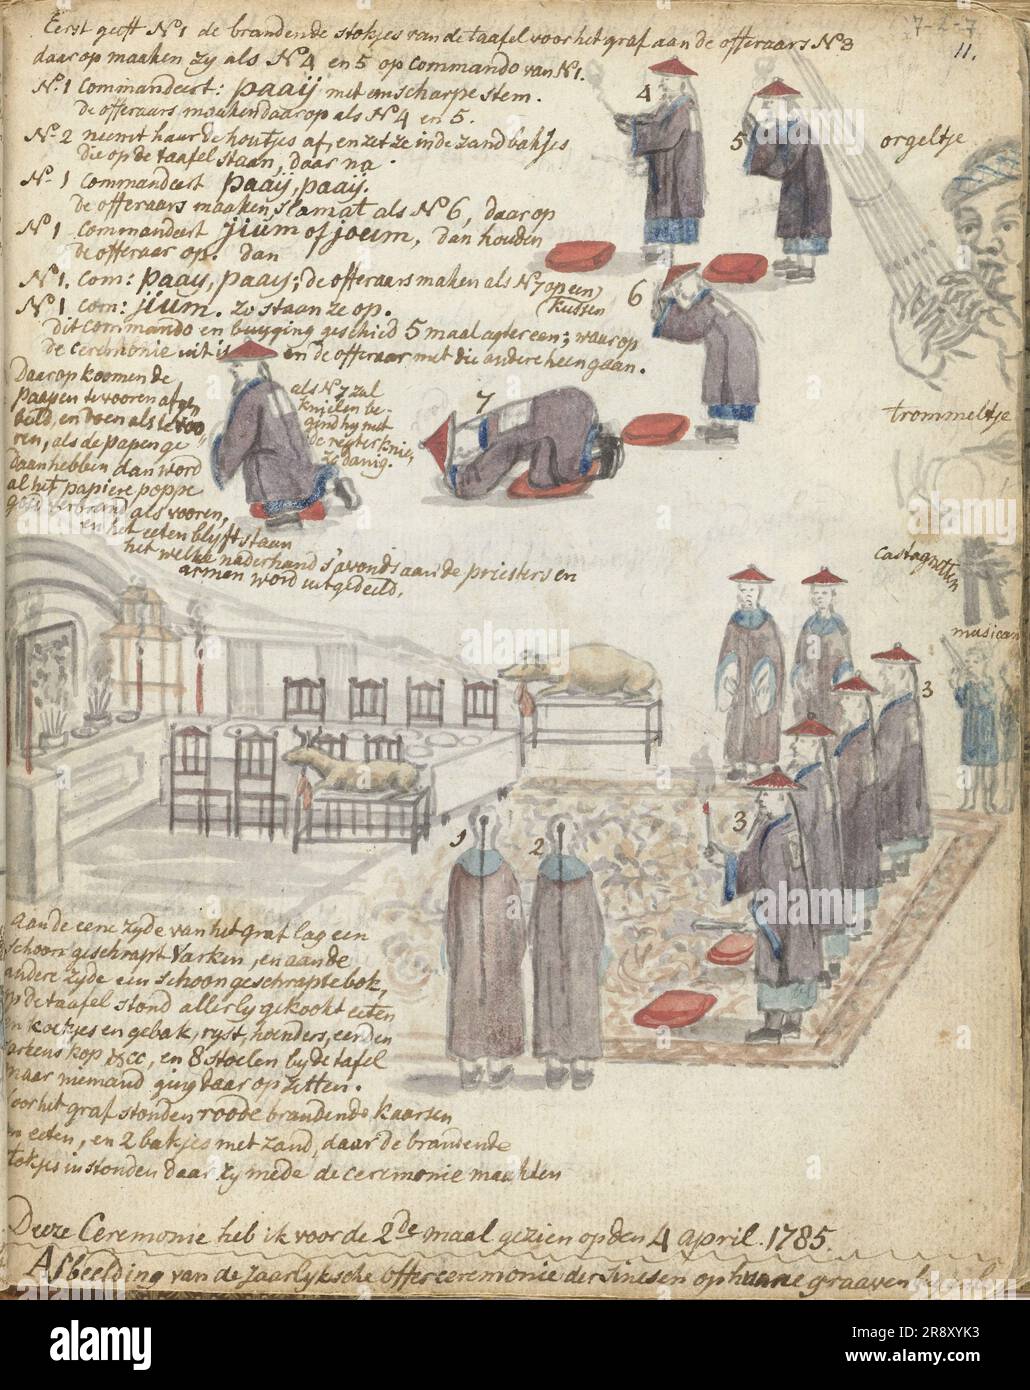 7-2-7
11.
Eerst geeft No 1 de brandende stokjes van de taafel voor het graf aan de offeraars No 3
daar op maaken zy als No 4 en 5 op commando van No 1.
No. 1 Commandeert: paaij met een scharpe stem.
de offeraars maaken daar op als No 4 en 5.
No. 2 neemt haar de houtjes af, en zet ze in de zandbakjes
die op de taafel staan, daar na
No. 1 Commandeert paaij, paaij.
de offeraars maaken slamat als No 6, daar op
No 1 Commandeert jium of joeum, dan houden
de offeraar op. dan
No 1. Com: paaij, paaij; de offeraars maken als No 7 op een
kussen
No 1 Com: jium. zo staan ze op.
dit Commando en buyging geschied 5 maal agter een; waar op
de ceremonie uit is en de offeraar met die andere heen gaan.
Daar op koomen de
paapen te vooren
beeld, en doen als te voo
ren, als de papen ge
daan hebben dan word
al het papiere poppe
goed verbrand als vooren,
en het eeten blyft staan
het welke naderhand s'avonds aan de priesters en
armen word uitgedeeld.
als No 7 zal
knielen be-
gind hy met
de regter knie,
zo danig.
4
5
6
7
orgeltje
trommeltje
castagnetten
musican
3
3
1
2
aan de eene zyde van het graf lag een
schoon geschrapt Varken, en aan de
andere zyde een schoon geschrapte bok,
op de taafel stond allerly gekookt eeten
en koekjes en gebak, ryst, hoenders, eenden
varkens kop &cc, en 8 stoelen by de tafel
maar niemand ging daar op zitten.
voor het graf stonden roode brandende kaarsen
en eeten, en 2 bakjes met zand, daar de brandende
stokjes in stonden daar zy mede de ceremonie maakten
Deeze Ceremonie heb ik voor de 2de maal gezien op den 4 april. 1785.
Afbeelding van de Jaarlyksche offerceremonie der Sineesen op haare graaven
alamy
Image ID: 2R8XYK3
www.alamy.com